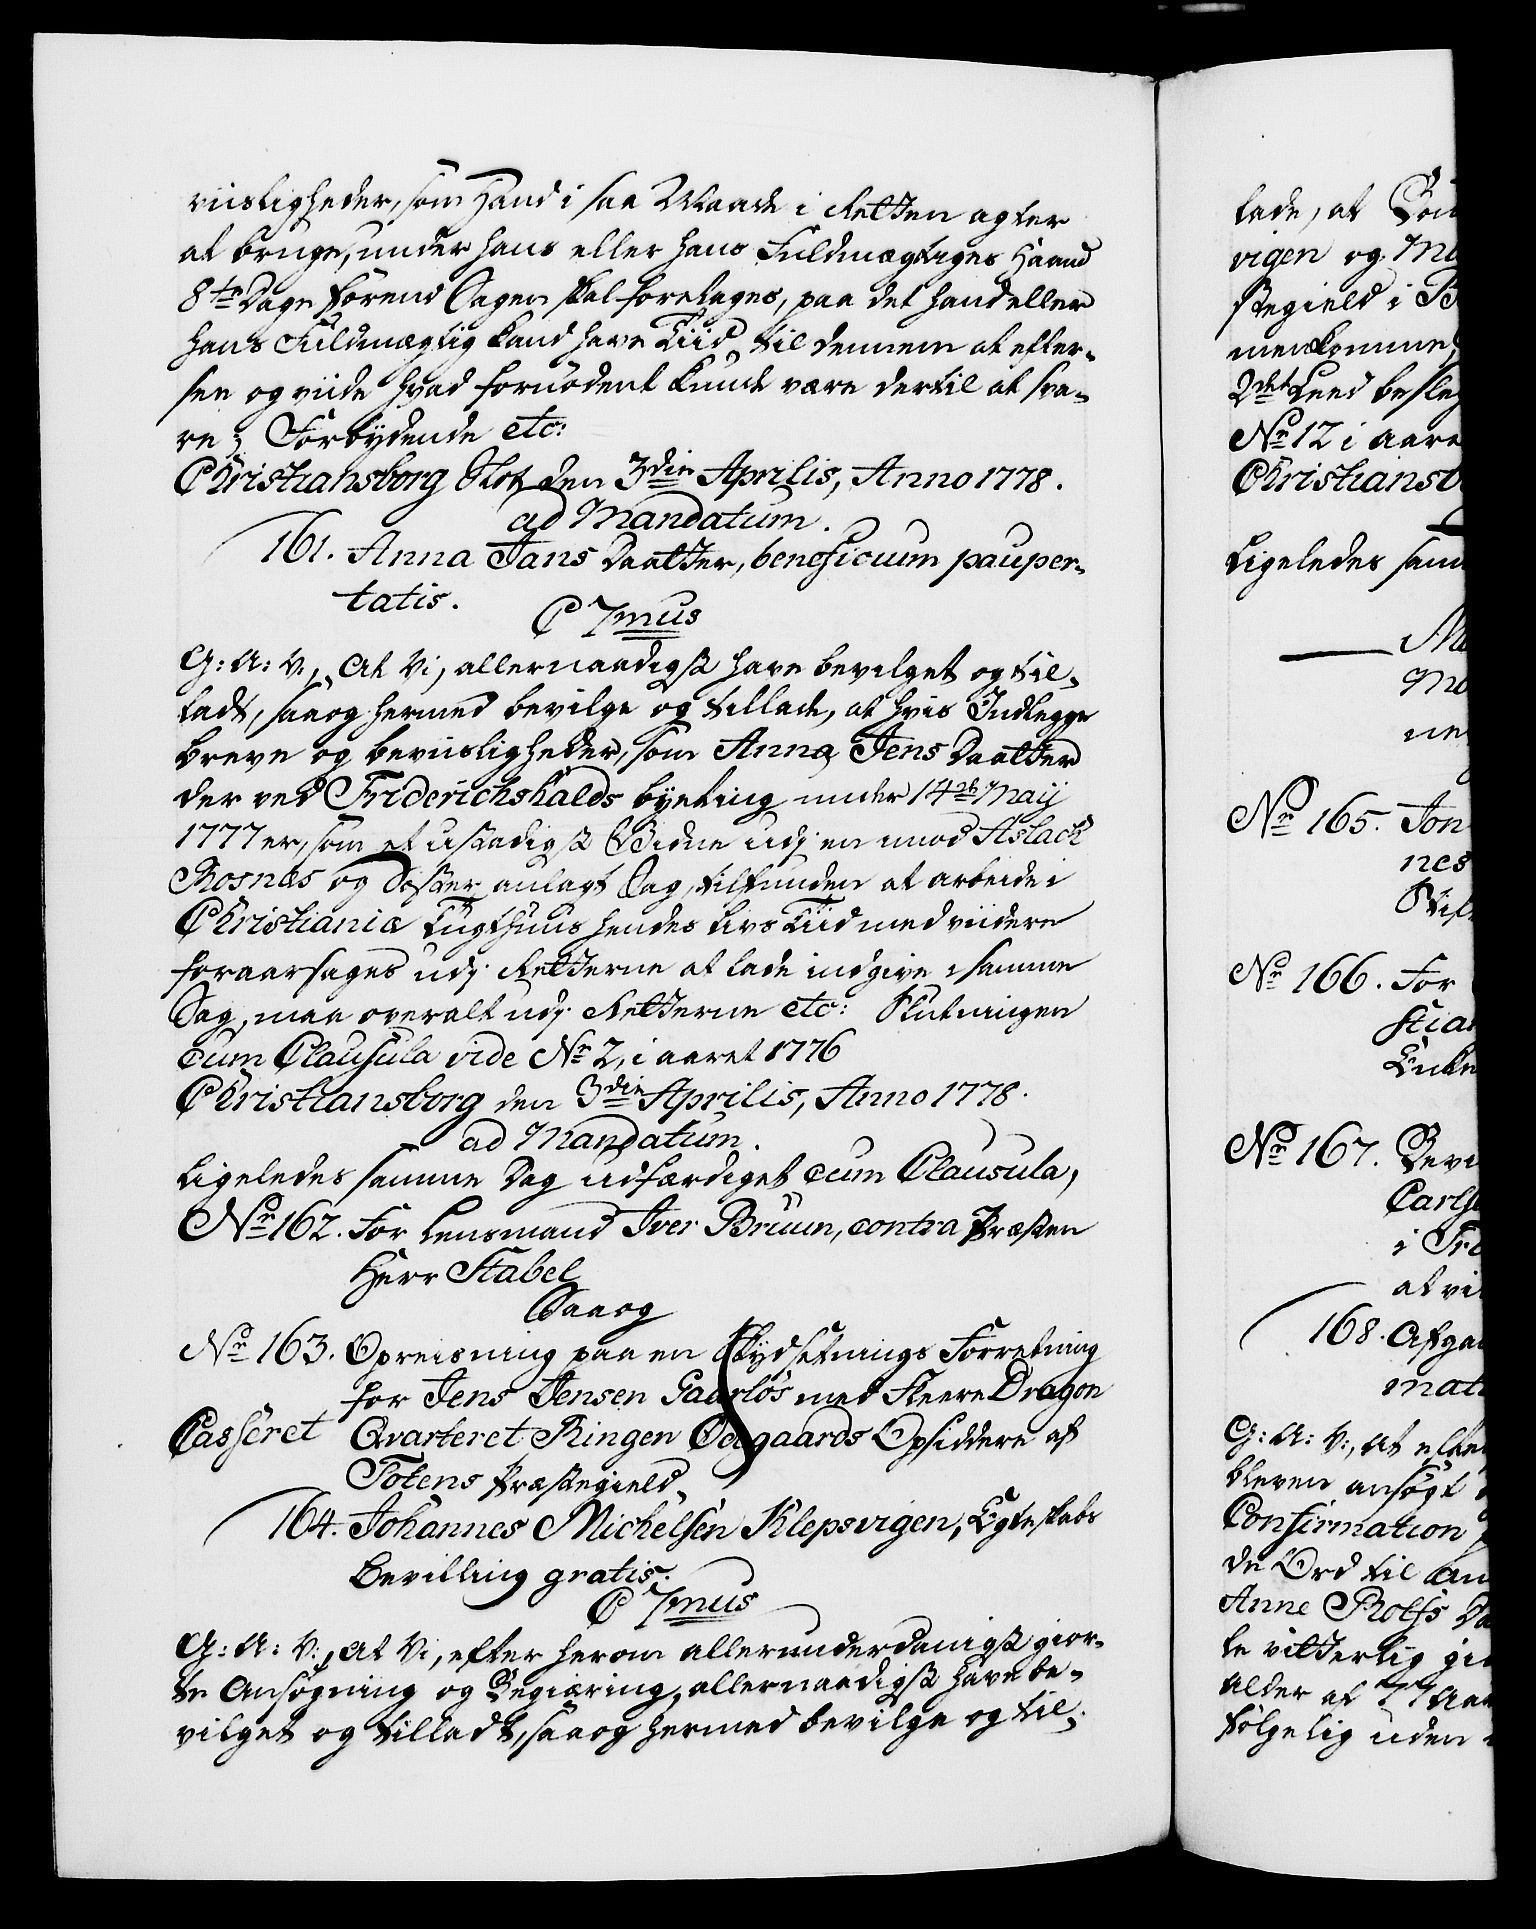 viisligheder, som Hand i saa Maade i Retten agter
at bruge, under hans eller hans Fuldmægtiges Haand
8te Dage førend Sagen skal foretages, paa det hand eller
hans Fuldmægtig kand have Tiid til dennem at efter-
see og viide hvad fornødent kunde være dertil at sva-
re; Forbydende etc:
Christiansborg Slot den 3die Aprilis, Anno 1778.
ad Mandatum.
161. Anna Jans Daatter, beneficium pauper-
tatis.
C 7mus
G: A: V:, At Vi, allernaadigst have bevilget og til-
ladt, saa og hermed bevilge og tillade, at hvis Indlegge
breve og beviisligheder, som Anna Jens Daatter
der ved Friderichshalds byeting under 14de Maij
1777 er, som et ustadigt Vidne udj en mod Aslach
Rosnæs og Søster anlagt Sag, tilfunden at arbeide i
Christiania Tugthuus hendes Livs Tiid med viidere
foraarsages udj Retterne at lade indgive i samme
Sag, maa overalt udj Retterne etc: Slutningen
cum Clausula vide No 2, i aaret 1776
Christiansborg den 3die Aprilis, Anno 1778.
ad Mandatum.
Ligeledes samme Dag udfærdiget cum Clausula,
No 162. For Lensmand Iver Bruun, contra Præsten
Herr Stabel
Saa og
No 163. Opreisning paa en Skydsetnings Forretning
for Jens Jensen Gaarløs med Fleere Dragon
Casseret Qvarteret Ringen Odegaards Opsiddere af
Totens Præstegield.
164. Johannes Michelsen Klepsvigen, Egteskabs
Bevilling gratis.
C 7mus
G: A: V:, At Vi, efter herom allerunderdanigst gior-
te Ansøgning og Begiæring, allernaadigst have be-
vilget og tilladt, saa og hermed bevilge og til-
lade, at
vigen og
stegield i
menkomme
2det Leed besleg
No 12 i aare
Christiansb
Ligeledes sam
No 165. Jon
nes
No 166. For
stian
Enke
No 167. Bevi
Carls
i Fre
at vi
168. Afga
mati
G: A: V:, At efter
bleven ansøgt
Confirmation
de Ord til
Anne Rolfs Da
te vitterlig gi
Alder af 77 Aar
følgelig uden